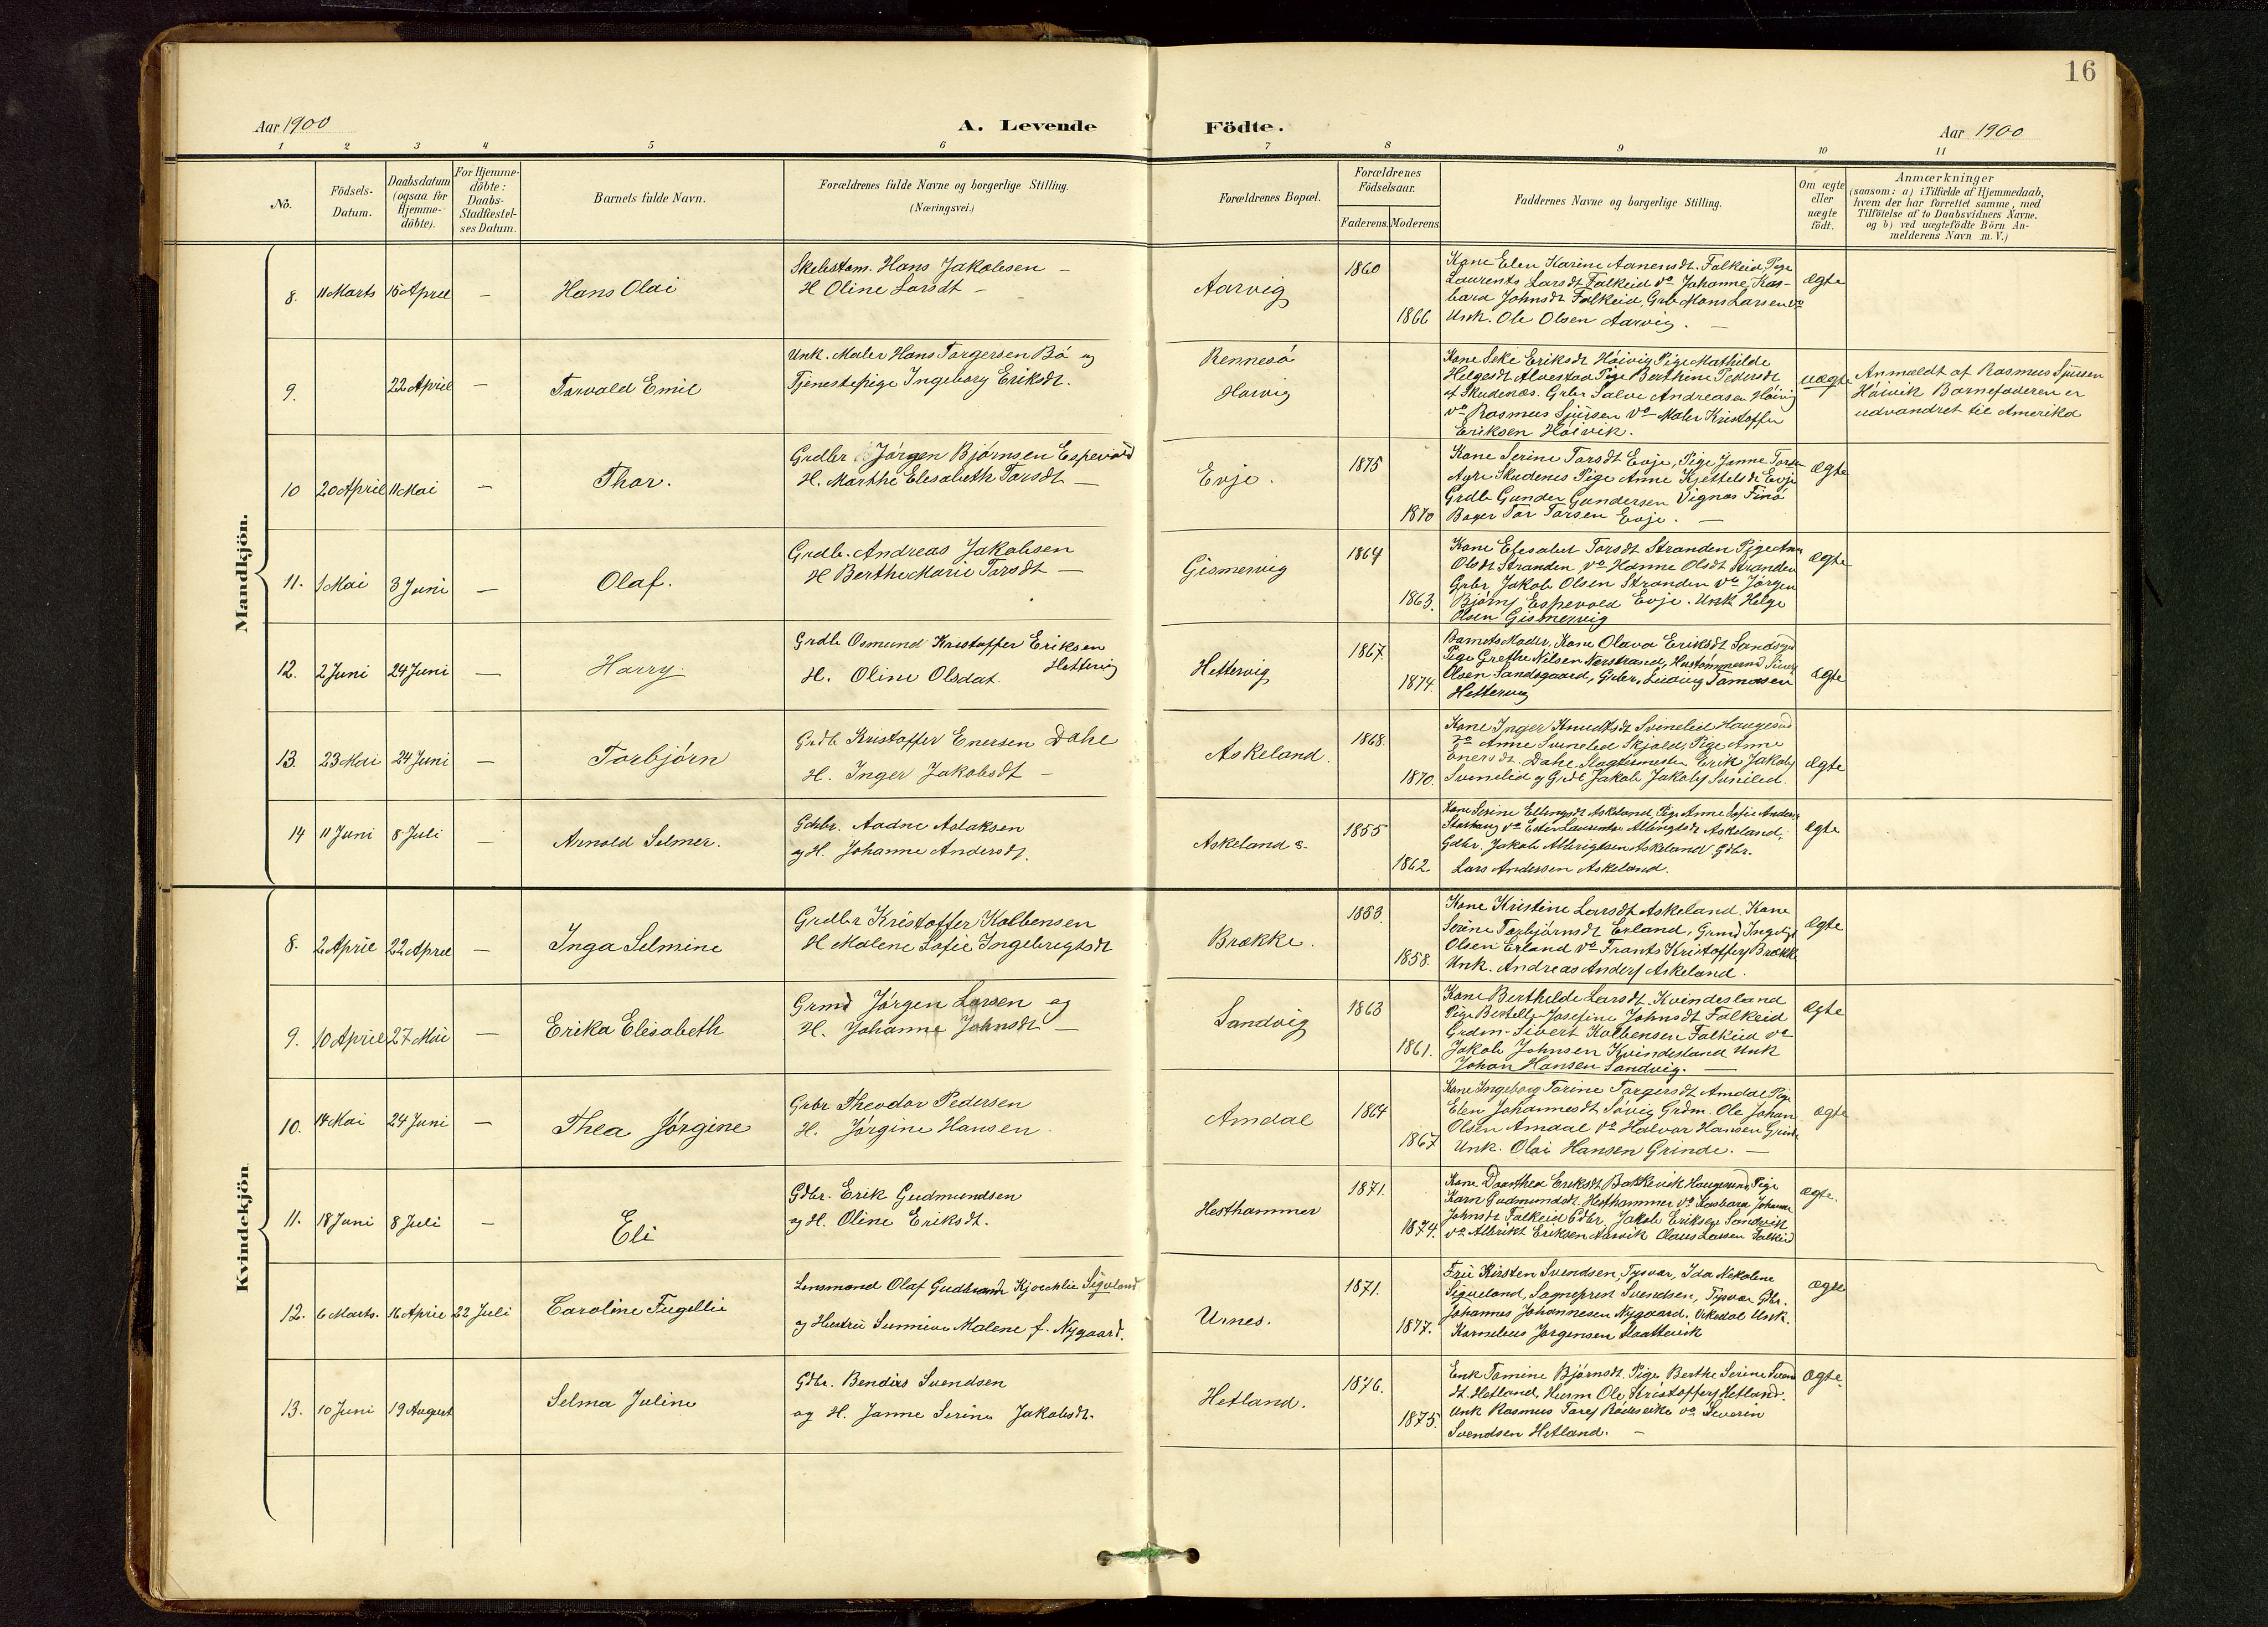 16
Aar 1900
A. Levende
Födte.
Aar 1900
1 2 3 4 5 6 7 8 9 10 11
No.
Födsels-Datum.
Daabsdatum (ogsaa for Hjemme-döbte).
For Hjemme-döbte: Daabs-Stadfæstel-ses Datum.
Barnets fulde Navn.
Forældrenes fulde Navne og borgerlige Stilling.
(Næringsvei.)
Forældrenes Bopæl.
Forældrenes Födselsaar.
Faderens. Moderens.
Faddernes Navne og borgerlige Stilling.
Om ægte eller uægte födt.
Anmærkninger
(saasom: a) i Tilfælde af Hjemmedaab,
hvem der har forrettet samme, med
Tilföielse af to Daabsvidners Navne.
og b) ved uægtefödte Börn An-
melderens Navn m. V.)
Mandkjön.
8. 11 Marts 16 April – Hans Olai
Skibstøm. Hans Jakobsen –
H Oline Larsdt –
Aarvig
1860
1866
Kone Elen Karine Aanensdt. Falkeid, Pige
Laurents Larsdt Falkeid do Johanne Kas-
bara Johnsdt Falkeid, Grb Mons Larsen do
Unk. Ole Olsen Aarvig. –
ægte
9. 22 April – Torvald Emil
Unk. Maler Hans Torgersen Bö og
Tjenestepige Ingeborg Eriksdt.
Rennesö
Hoivig
Kone Seke Eriksdt Höivig Pige Mathilde
Helgesdt Alvestad Pige Berthine Pedersdt
af Skudenæs. Grbr Salve Andreasen Höivig
do Rasmus Sjursen do Maler Kristoffer
Eriksen Höivik.
uægte
Anmældt af Rasmus Sjursen
Höivik Barnefaderen er
udvandret til Amerika
10 20 April 11 Mai – Thor.
Grdbr Jörgen Björnsen Espevold
H. Marthe Elesabeth Torsdt –
Evje.
1875
1870
Kone Serine Torsdt Evje, Pige Janne Tors
Agre Skudenes Pige Anne Kjettelsdt Evje
Grdb Gunder Gundersen Vignæs Finö
Bager Tor Torsen Evje. –
ægte
11. 1 Mai 3 Juni – Olaf.
Grdb. Andreas Jakobsen
H Berthe Marie Torsdt –
Gismervig
1864
1863.
Kone Elesabet Torsdt Stranden Pige Ane
Olsdt Stranden, do Hanne Olsdt Stranden
Grbr Jakob Olsen Stranden do Jörgen
Björns Espevold Evje. Unk Helge
Olsen Gismervig
ægte
12. 2 Juni 24 Juni – Harry.
Grdb Osmund Kristoffer Eriksen
Hettervig
H. Oline Olsdat.
Hettervig
1867.
1874.
Barnets Moder, Kone Olava Eriksdt Sandsgd
Pige Grethe Nilsen Nerstrand, Hustömmermd
Olsen Sandsgaard, Grbr. Ludvig Tomasen
Hettervig
ægte
13. 23 Mai 24 Juni – Torbjörn
Grdb Kristoffer Enersen Dahl
H. Inger Jakobsdt –
Askeland.
1868.
1870.
Kone Inger Knudtsdt Svinelid Haugesund
do Anne Svinelid Skjold, Pige Anne
Enersdt. Dahl Slagtermester Erik Jakobs
Svinelid og Grdb Jakob Jakobs Svinelid
ægte
14 11 Juni 8 Juli – Arnold Selmer.
Gdbr. Aadne Aslaksen
og H. Johanne Andersdt.
Askeland
1855
1862.
Kone Serine Ellingsdt Askeland, Pige Anne Sofie Anders
Storhaug do Ester Laurentse Albrigtsdt Askeland,
Gdbr. Jakob Albrigtsen Askeland Gdbr.
Lars Andersen Askeland.
ægte
Kvindekjön.
8. 2 April 22 April – Inga Selmine
Grdbr Kristoffer Kolbensen
H Malene Sofie Ingebregtsdt
Brække.
1853.
1858.
Kone Kristine Larsdt Askeland, Kone
Serine Torbjörnsdt Erland, Grmd Ingebrigt
Olsen Erland do Frants Kristoffers Brække
Unk. Andreas Anders Askeland.
ægte
9. 10 April 27 Mai – Erika Elisabeth
Grmd Jörgen Larsen og
H. Johanne Johnsdt –
Sandvig
1863
1861.
Kone Berthilde Larsdt Kvindesland
Pige Bertelle Josefine Johnsdt Falkeid
Grdm. Sivert Kolbensen Falkeid do
Jakob Johnsen Kvindesland Unk
Johan Hansen Sandvig. –
ægte
10. 14 Mai 24 Juni – Thea Jörgine
Grbr Theodor Pedersen
H. Jörgine Hansen.
Amdal
1864
1867
Kone Ingeborg Torine Torgersdt Amdal Pige
Elen Johannesdt Sövig Grdm. Ole Johan
Olsen Amdal do Halvor Hansen Grinde
Unk. Olai Hansen Grinde. –
ægte
11. 18 Juni 8 Juli – Eli
Gdbr. Erik Gudmundsen
og H. Oline Eriksdt.
Hesthammer
1871.
1874.
Kone Doorthea Eriksdt Bakkevik Haugesund, Pige
Karn Gudmundsdt. Hesthammer do Kasbara Johanne
Johnsdt Falkeid Gdbr. Jakob Eriksen Sandvik
do Albrikt Eriksen Aarvik Olaus Larsen Falkeid
ægte.
12. 6 Marts. 16 April 22 Juli Caroline Fugellie
Lensmand Olaf Gudbrand Kjoechlie Sigveland
og Hustru Sunniva Malene f. Nygaard.
Urnes.
1871.
1877.
Fru Kirsten Svendsen, Tysvær, Ida Nekoline
Sigveland, Sognepræst Svendsen, Tysvær Gdbr.
Johannes Johannesen Nygaard. Vikedal Unk.
Kornelius Jørgensen Slaattevik
ægte
13. 10 Juni 19 August Selma Juline
Gdbr. Bendiks Svendsen
og H. Janne Serine Jakobsdt.
Hetland.
1876.
1875.
Enk Tomine Björnsdt. Pige Berthe Serine Svend
dt. Hetland, Husm Ole Kristoffers Hetland.
Unk Rasmus Tores do Severin
Svendsen Hetland. –
ægte.